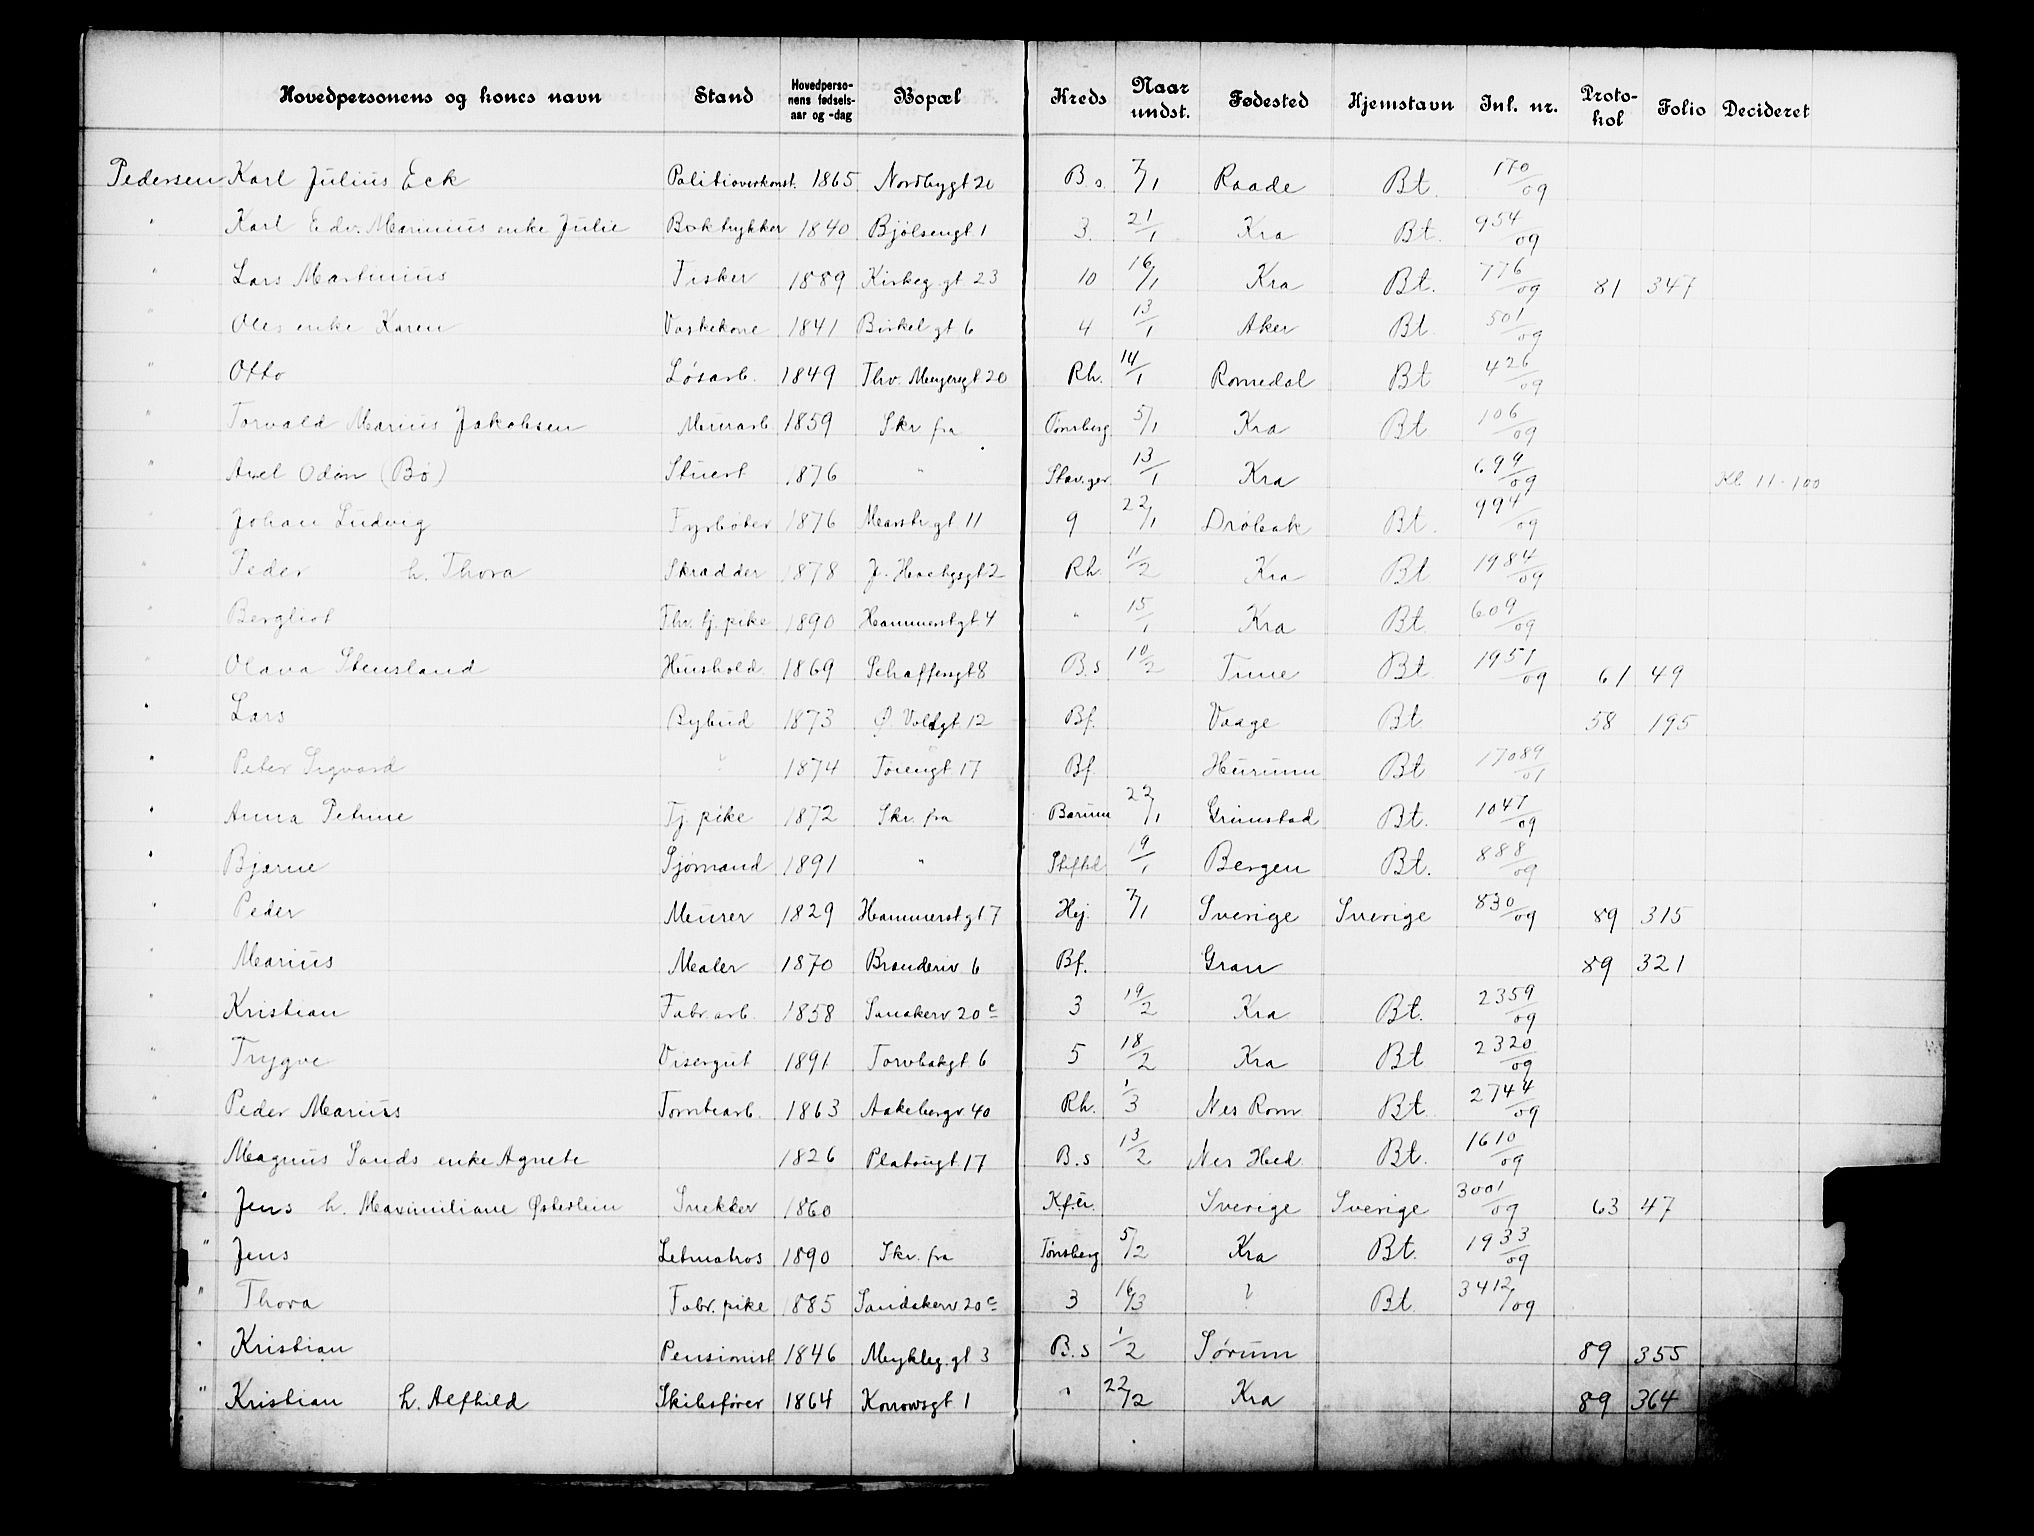 Hovedpersonens og kones navn Stand Hovedpersonens fødselsaar og -dag Bopæl Kreds Naar undst. Fødested Hjemstavn Inl. nr. Protokol Folio Decideret
Pedersen Karl Julius Eck Politioverkonst. 1865 Nordbygt 20 B.s. 7/1 Raade Bt. 170/09
" Karl Edv. Marinius enke Julie Boktrykker 1840 Bjölsengt 1 3. 21/1 Kra Bt. 954/09
" Lars Martinius Fisker 1889 Kirkeg.gt 23 10 16/1 Kra Bt. 776/09 81 347
" Oles enke Karen Vaskekone 1841 Birkel gt 6 4 13/1 Aker Bt. 501/09
" Otto Løsarb. 1849 Thv. Meyersgt 20 Rh. 14/1 Romedal Bt 426/09
" Torvald Marius Jakobsen Murarb. 1859 Skr. fra Tønsberg 5/1 Kra Bt. 106/09
" Axel Odin (Bø) Stuert 1876 " Stav.ger 13/1 Kra 699/09 Kl 11-100
" Johan Ludvig Fyrbøter 1876 Marstr.gt 11 9 22/1 Drøbak Bt. 994/09
" Peder h. Thora Skrædder 1878 Rh. 11/2 Kra Bt 1984/09
" Bergliot Thv. tj. pike 1890 Hammerst gt. 4 " 15/1 Kra Bt. 609/09
" Olava Stensland Hushold. 1869 Schaffersgt 8 B.s 10/2 Tune Bt. 1951/09 61 49
" Lars Bybud 1873 Ø. Voldgt. 12 Bf. Vaage Bt 58 195
" Peter Sigvard " 1874 Töiengt 17 Bf. Hurum Bt 17089/01
" Anna Petrine Tj. pike 1872 Skr. fra Bærum 22/1 Grimstad Bt. 1047/09
" Bjarne Sjømand 1891 " 19/1 Bergen Bt. 888/09
" Peder Murer 1829 Hammerst gt 7 Hej. 7/1 Sverige Sverige 830/09 89 315
" Marius Maler 1870 Branderiv 6 Bf. Gran 89 321
" Kristian Fabr. arb. 1858 Sanakerv 20 c 3 19/2 Kra Bt. 2359/09
" Trygve Visergut 1891 Torvbakgt. 6 5 18/2 Kra Bt 2320/09
" Peder Marius Tomtearb. 1863 Aakebergv 40 Rh. 1/3 Nes Rom. Bt. 2744/09
" Magnus Sands enke Agnete 1826 Platougt 17 B.s 13/2 Nes Hed. Bt. 1610/09
" Jens h. Maximiliane Østerlein Snekker 1860 Sverige Sverige 3001/09 63 47
" Jens Letmatros 1890 Skr. fra Tønsberg 5/2 Kra Bt. 1933/09
" Thora Fabr. pike 1885 Sandakerv 20 c 3 16/3 ? Bt. 3412/09
" Kristian Pensionist 1846 Meykleg.gt 3 B.s 1/2 Sørum 89 355
" Kristian h. Alfhild Skibsfører 1864 Korrowsgt 1 " 22/2 Kra 89 364